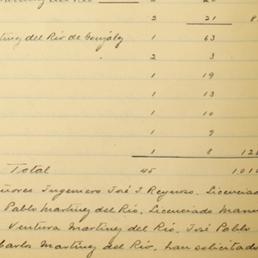 2 21 8
tínez del Río de González 1 63
2 3
1 19
1 13
1 10
1 9
1 8 126
Total 45 1010
ñores Ingeniero José I Reynoso. Licenciad
Pablo Martínez del Río, Licenciado Manu
Ventura Martínez del Río, José Pablo
Carlos Martínez del Río, han solicitado